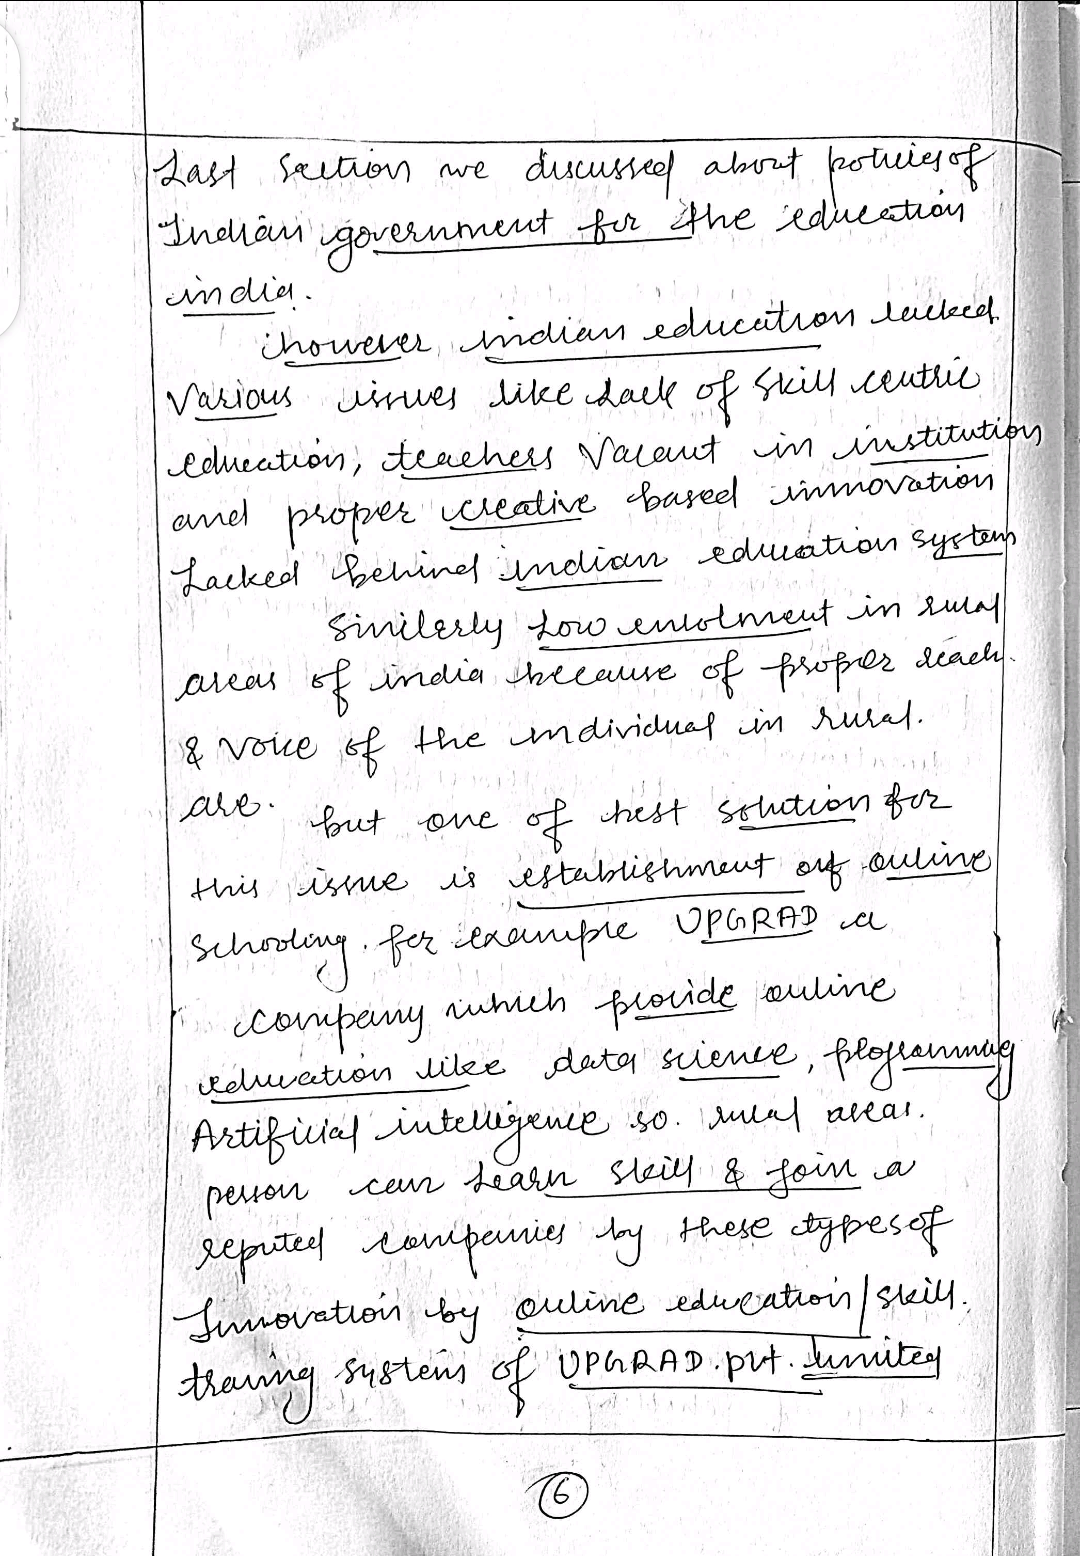 Last Section we discussed about policies of
Indian government for the education
india.
however, indian education lacked
Various issues like Lack of Skill centric
education, teachers Vacant in institution
and proper creative based innovation
Lacked behind indian education system
Similerly Low enrolment in rural
areas of india because of proper reach.
& voice of the individual in rural.
are.
but one of best solution for
this issue is establishment of online
Schooling. for example UPGRAD a
company which provide online
education like data science, programming
Artificial intelligence so. rural areas.
person can Learn skill & join a
reputed companies by these types of
Innovation by online education/skill.
traning systems of UPGRAD.pvt.limited
6